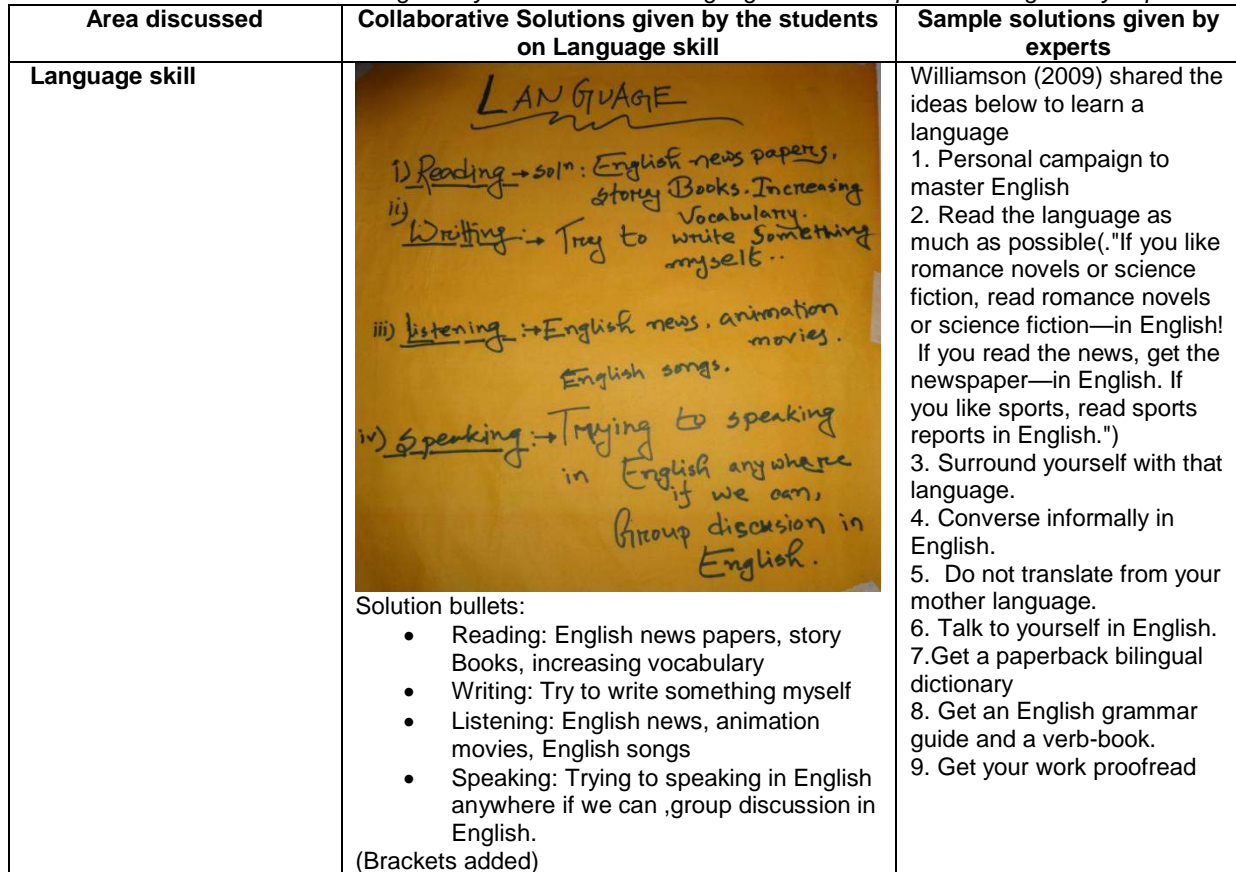 Area discussed
Collaborative Solutions given by the students
on Language skill
Sample solutions given by
experts
Language skill
LANGUAGE
i) Reading → solⁿ: English news papers,
storey Books. Increasing
Vocabulary.
ii)
Writting :→ Trey to write something
myself..
iii) Listening :→ English news, animation
movies.
English songs.
iv) Speaking :→ Trying to speaking
in English anywhere
if we can,
Group discusion in
English.
Solution bullets:
• Reading: English news papers, story
Books, increasing vocabulary
• Writing: Try to write something myself
• Listening: English news, animation
movies, English songs
• Speaking: Trying to speaking in English
anywhere if we can ,group discussion in
English.
(Brackets added)
Williamson (2009) shared the
ideas below to learn a
language
1. Personal campaign to
master English
2. Read the language as
much as possible(."If you like
romance novels or science
fiction, read romance novels
or science fiction—in English!
If you read the news, get the
newspaper—in English. If
you like sports, read sports
reports in English.")
3. Surround yourself with that
language.
4. Converse informally in
English.
5. Do not translate from your
mother language.
6. Talk to yourself in English.
7.Get a paperback bilingual
dictionary
8. Get an English grammar
guide and a verb-book.
9. Get your work proofread